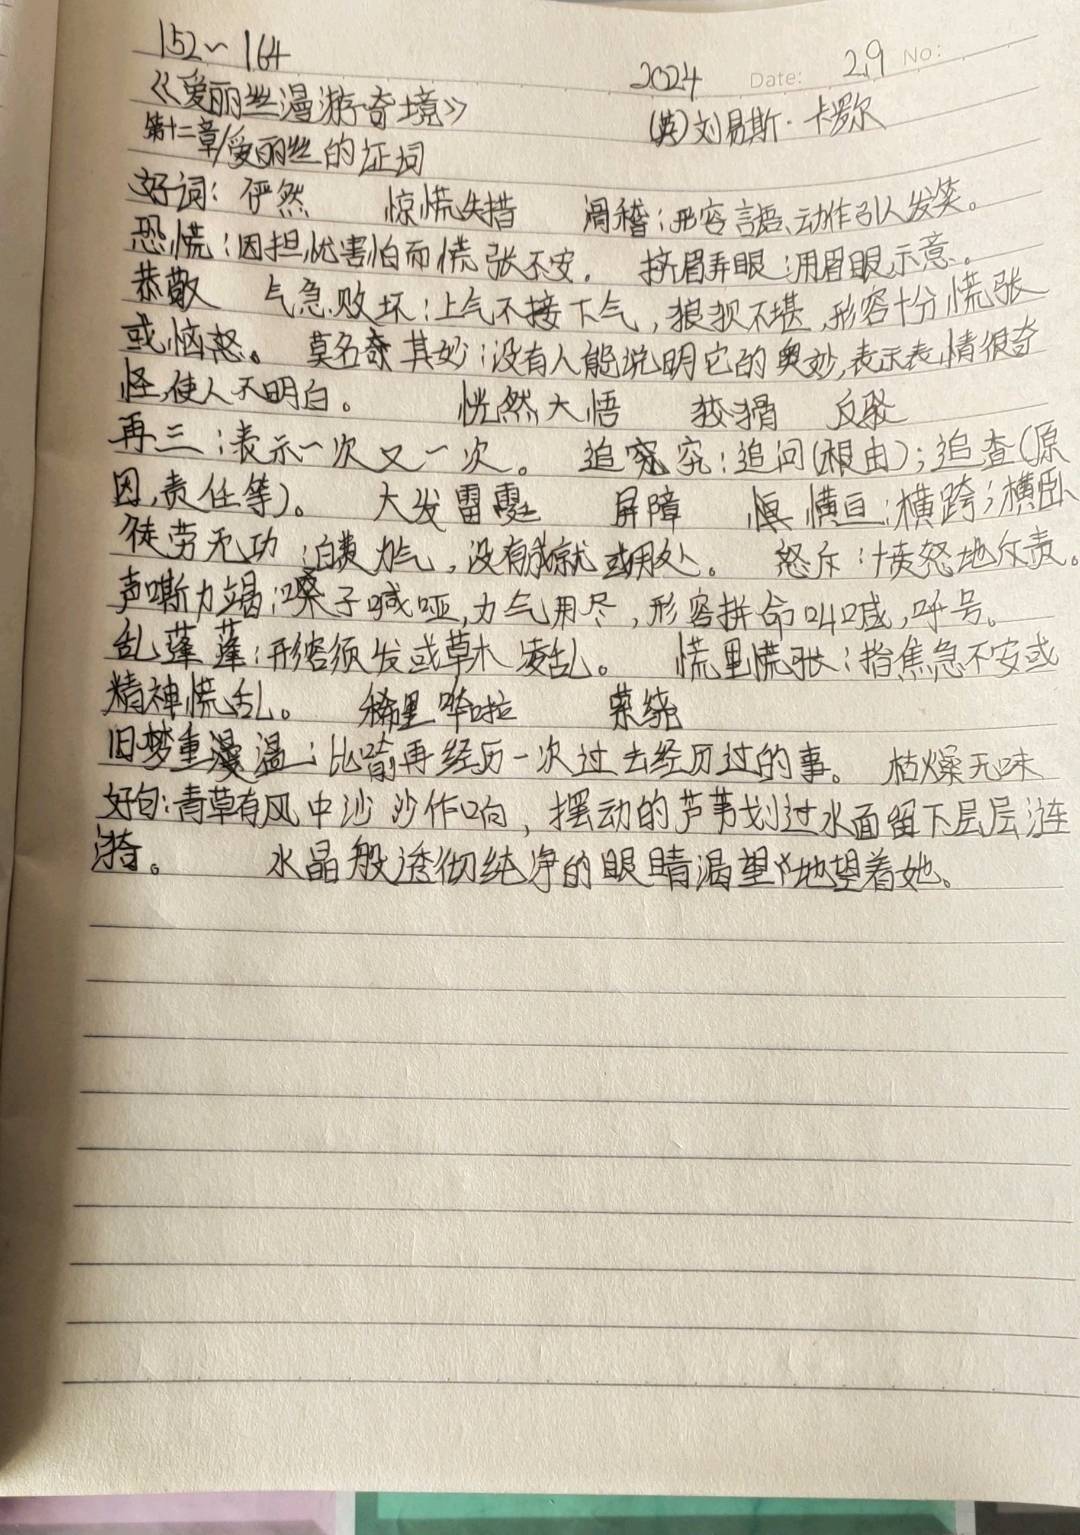 152~164
2024 Date: 2.9 No:
《爱丽丝漫游奇境》 (英)刘易斯·卡罗尔
第十二章/爱丽丝的证词
好词：俨然 惊慌失措 滑稽：形容言语、动作引人发笑。
恐慌：因担忧害怕而慌张不安。 挤眉弄眼：用眉眼示意。
恭敬 气急败坏：上气不接下气，狼狈不堪，形容十分慌张
或恼怒。 莫名奇其妙：没有人能说明它的奥妙，表示表情很奇
怪，使人不明白。 恍然大悟 狡猾 反驳
再三：表示一次又一次。 追究：追问(根由)；追查(原
因，责任等)。 大发雷霆 屏障 横亘：横跨；横卧
徒劳无功：白费力气，没有成就或用处。 怒斥：愤怒地斥责。
声嘶力竭：嗓子喊哑，力气用尽，形容拼命叫喊，呼号。
乱蓬蓬：形容须发或草木凌乱。 慌里慌张：指焦急不安或
精神慌乱。 稀里哗啦 萦绕
旧梦重温：比喻再经历一次过去经历过的事。 枯燥无味
好句：青草有风中沙沙作响，摆动的芦苇划过水面留下层层涟
漪。 水晶般透彻纯净的眼睛渴望地望着她。